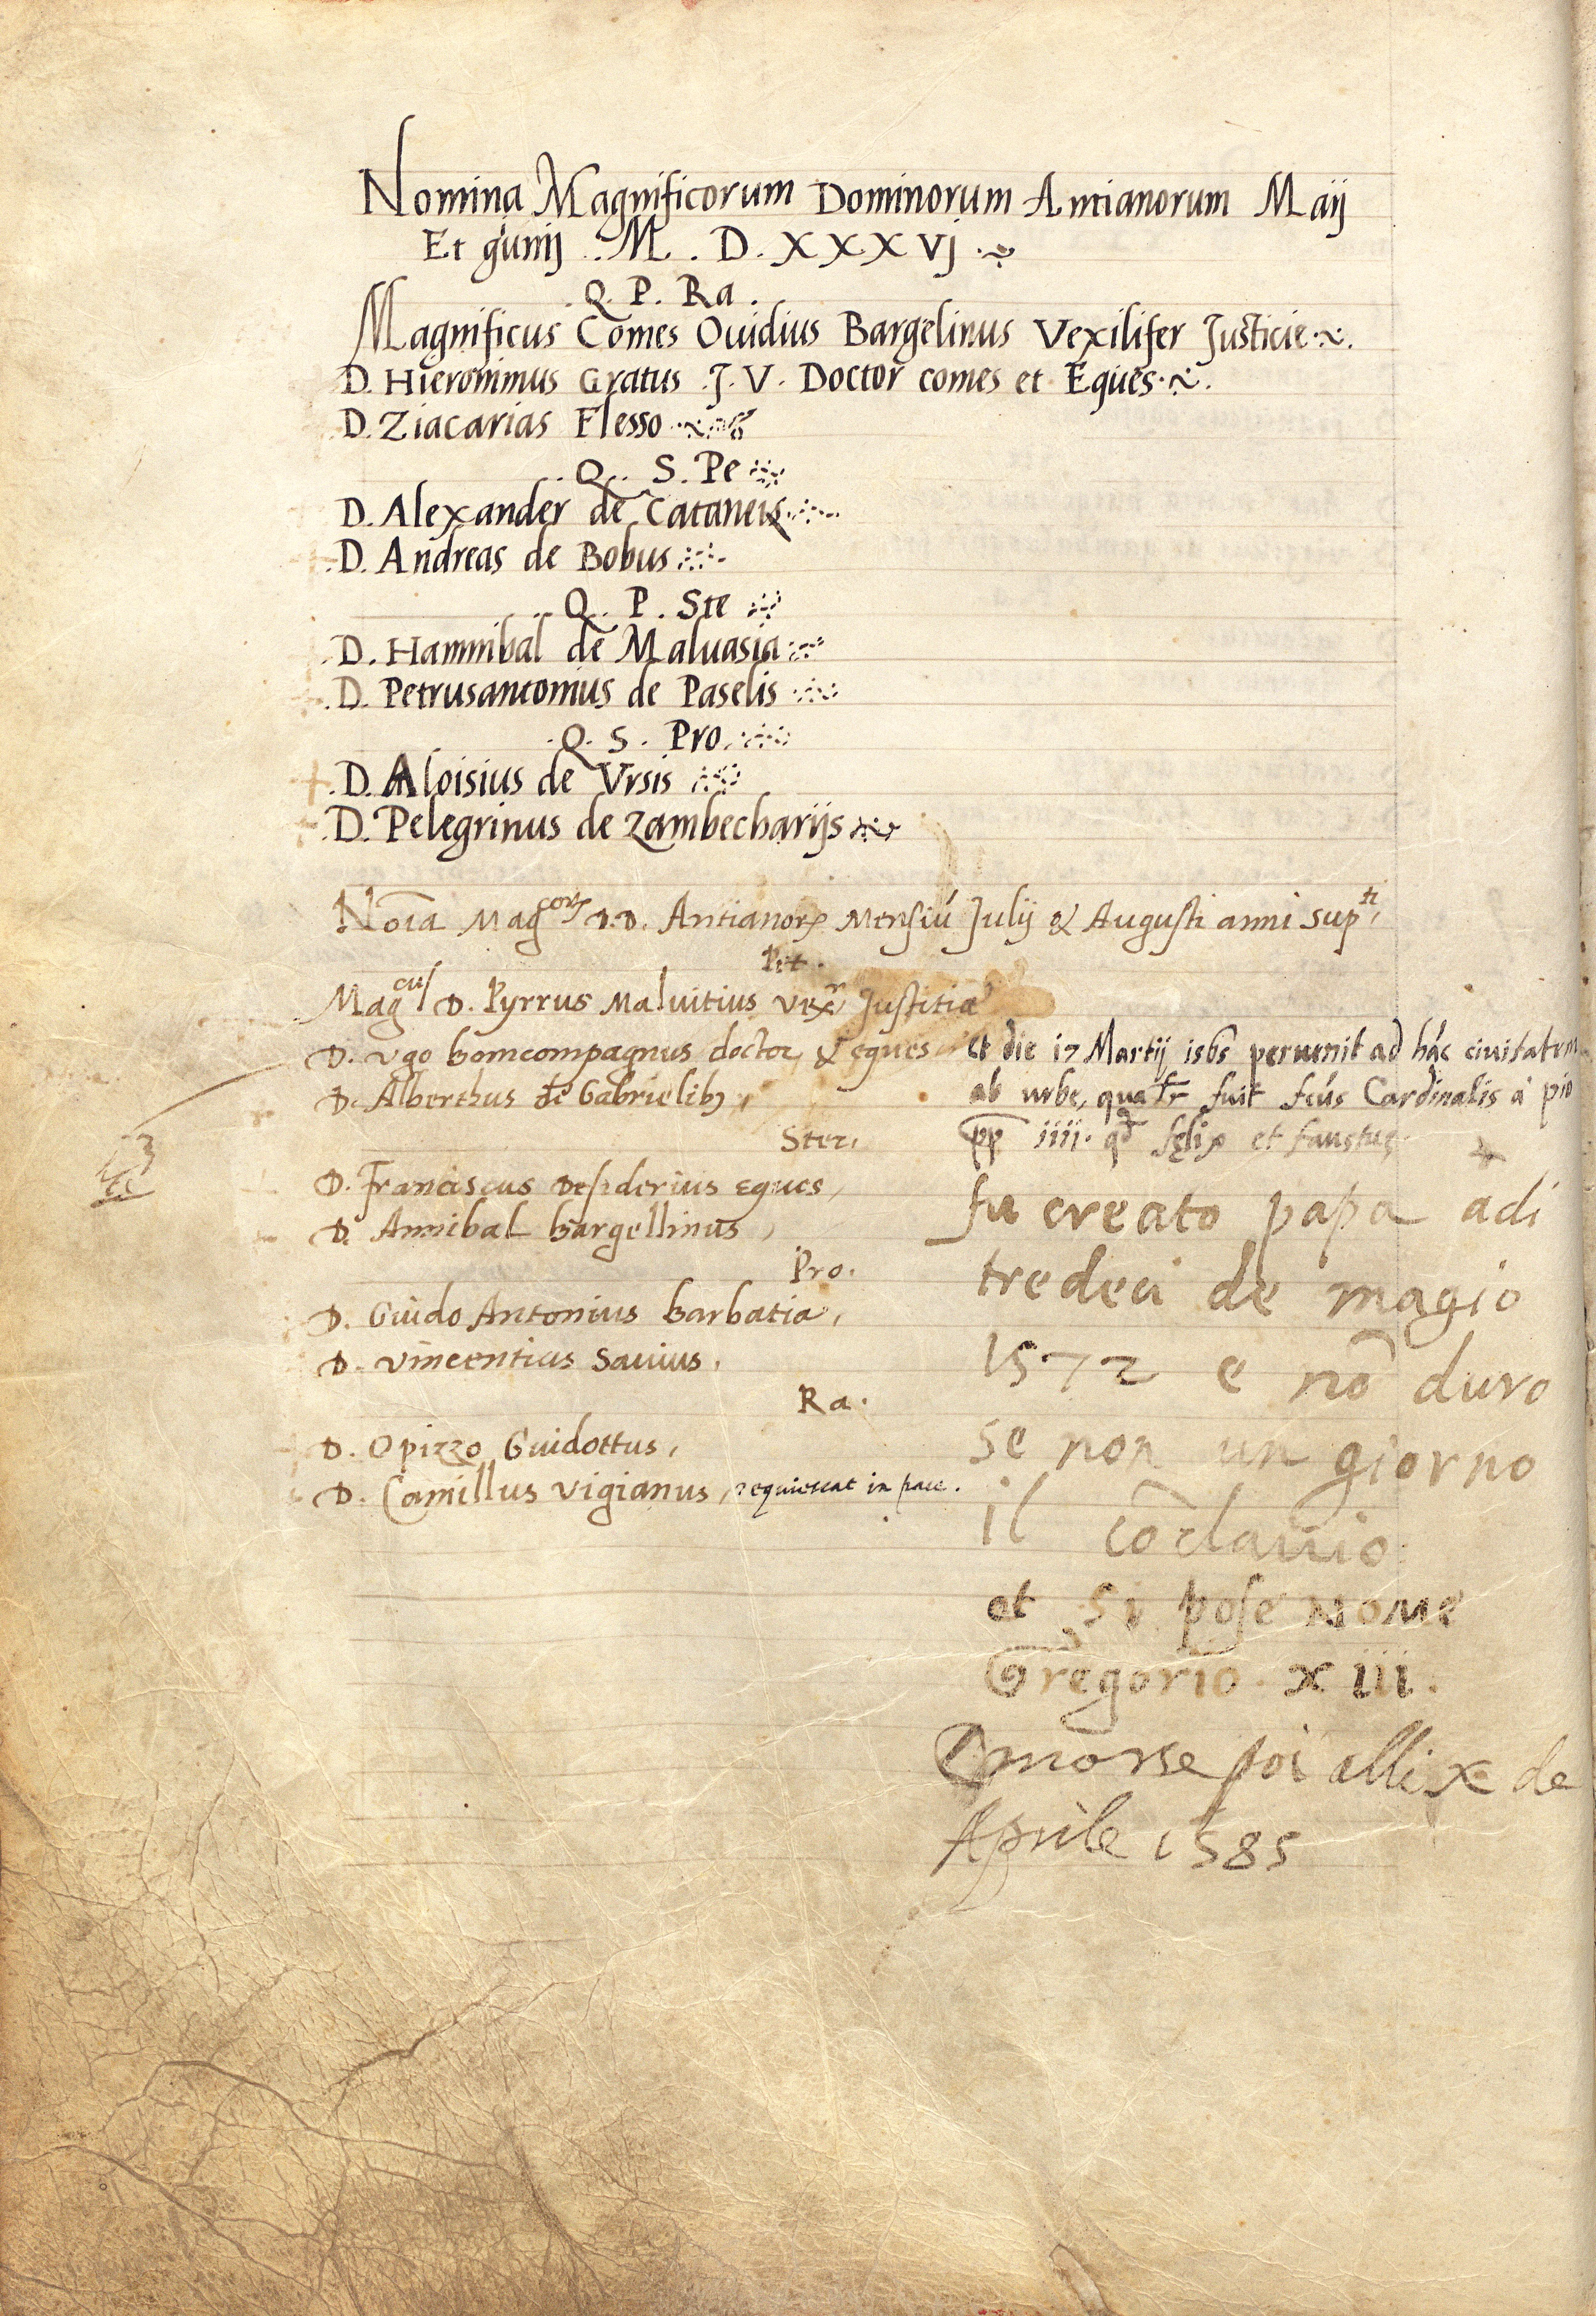 Nomina Magnificorum Dominorum Antianorum Maij
Et gunij .. M . D . X X X Vj .
. Q . P . Ra .
Magnificus Comes Ouidius Bargelinus Vexilifer Justicie .
D. Hieronimus Gratus . J . V . Doctor comes et Eques .
D. Ziacarias Flesso
. Q .. S . Pe
D. Alexander de Cataneis
. D. Andreas de Bobus
.. Q .. P . Ste
. D. Hannibal de Maluasia
. D. Petrusantonius de Paselis
. Q . S . Pro .
. D. Aloisius de Vrsis
. D. Pelegrinus de Zambecharijs
Noia Mag^corꝝ D.D. Antianorꝝ Mensiū Julij & Augusti anni sup^ti,
Pet .
Mag^cus D. Pyrrus Maluitius vex^r Justitiæ
D. vgo boncompagnus doctor & eques
et die 17 Martij 1565 peruenit ad hāc ciuitatem
D. Alberthus de Gabrielibꝫ,
ab urbe, fuit Cardinalis à pio
Ster.
pp iiii. fęlix et faustus.
D. Franciscus Desiderius Eques,
fu creato papa adi
D. Annibal bargellinus,
Pro.
tredeci de magio
D. Guido Antonius barbatia,
D. Vincentius Sauius.
1572 e nō duro
Ra .
D. Opizzo Guidottus,
se non un giorno
D. Camillus vigianus, requiescat in pace .
il cōclauio
et si pose nome
Gregorio . x iii .
morse poi alli x de
Aprile 1585